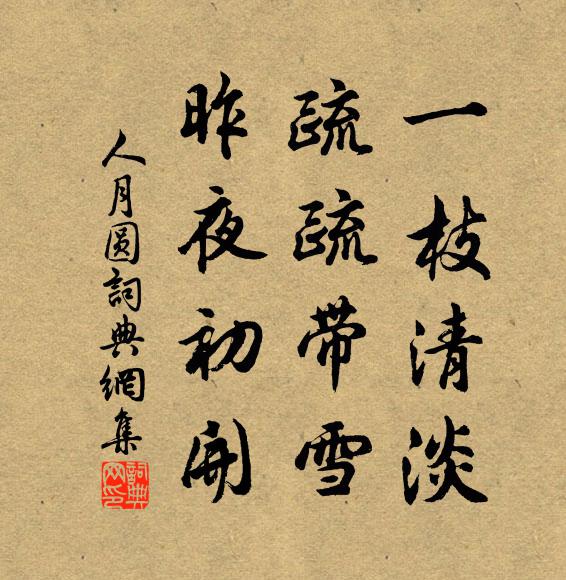 一枝清淡
疏疏带雪
昨夜初開
人月圆詞典網集
詞典网印